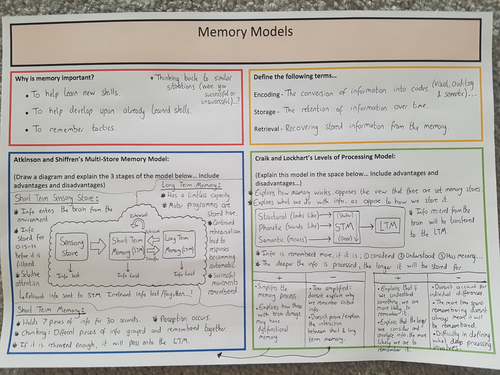 Memory Models
Why is memory important?
• To help learn new skills.
• To help develop upon already learned skills.
• To remember tactics.
• Thinking back to similar
situations (were you
successful or
unsuccessful)..?
Define the following terms...
Encoding - The conversion of information into codes (visual, auditory
& semantic)...
Storage - The retention of information over time.
Retrieval - Recovering stored information from the memory.
Atkinson and Shiffren's Multi-Store Memory Model:
(Draw a diagram and explain the 3 stages of the model below... Include
advantages and disadvantages)
Short Term Sensory Store:
Info enters the brain from the
environment
Info
stored for
0.25-0.5
before it is
filtered.
Selective
attention
Relevant info sent to STM. Irrelevant info lost/forgotten...!
Sensory
Store
Short Term
Memory (STM)
Long Term
Memory (LTM)
Info lost
Info lost
Info lost
Long Term Memory:
Has a limitless capacity.
Motor programmes are
stored here.
Continued
rehearsal can
lead to
responses
becoming
automatic.
Successful
movements
remembered
Short Term Memory:
Holds 7 pieces of info for 30 seconds.
Perception occurs.
Chunking: Different pieces of info grouped and remembered together.
If it is rehearsed enough, it will pass onto the LTM.
Craik and Lockhart's Levels of Processing Model:
(Explain this model in the space below... Include advantages and
disadvantages)...
Explains how memory works opposes the view that there are set memory stores.
Explains what we do with info, as oppose to how we store it.
Structural (looks like)
Phonetic (sounds like)
Semantic (means)
STM
LTM
Info received from
the brain will be
transferred
to the LTM
Info is remembered more, if it is: ① considered ② Understood ③ Has meaning...
The deeper the info is processed, the longer it will be stored for.
Simplifies the
memory process
Explains how those
with brain damage
may have
dysfunctional
memory
Too simplified:
doesn't explain why
we remember certain
info.
Doesn't prove/explain the
interaction
between short & long
term memory.
Explains that if
we understand
something we are
more likely to
remember it.
Explains that the longer
we consider and
analyse info the more
likely we are to
remember it.
Doesn't account for
individual differences
The more time spent
remembering doesn't
always mean it will
be remembered.
Difficulty in defining
what deep processing
involves